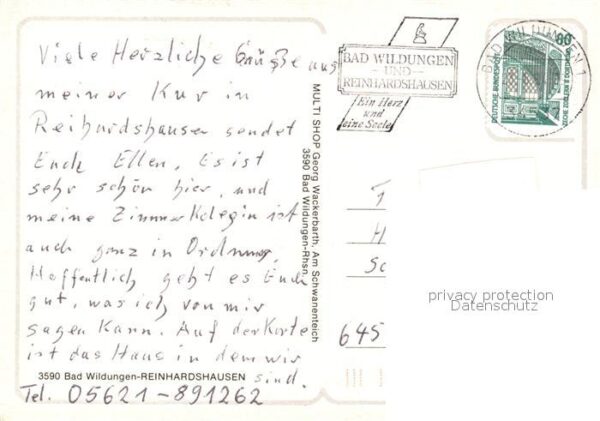 Viele Herzliche Grüße aus
meiner Kur in
Reihardshausen sendet
Euch Ellen. Es ist
sehr schön hier, und
meine Zimmerkolegin ist
auch ganz in Ordnung.
Hoffentlich geht es Euch
gut, was ich von mir
sagen kann. Auf der Karte
ist das Haus in dem wir
sind.
3590 Bad Wildungen-REINHARDSHAUSEN
Tel. 05621-891262
MULTI SHOP Georg Wackerbarth, Am Schwanenteich
3590 Bad Wildungen-Rhsn.
BAD WILDUNGEN
UND
REINHARDSHAUSEN
Ein Herz
und
eine Seele
BAD WILDUNGEN 1
60
DEUTSCHE BUNDESPOST
H
Sc
645
privacy protection
Datenschutz